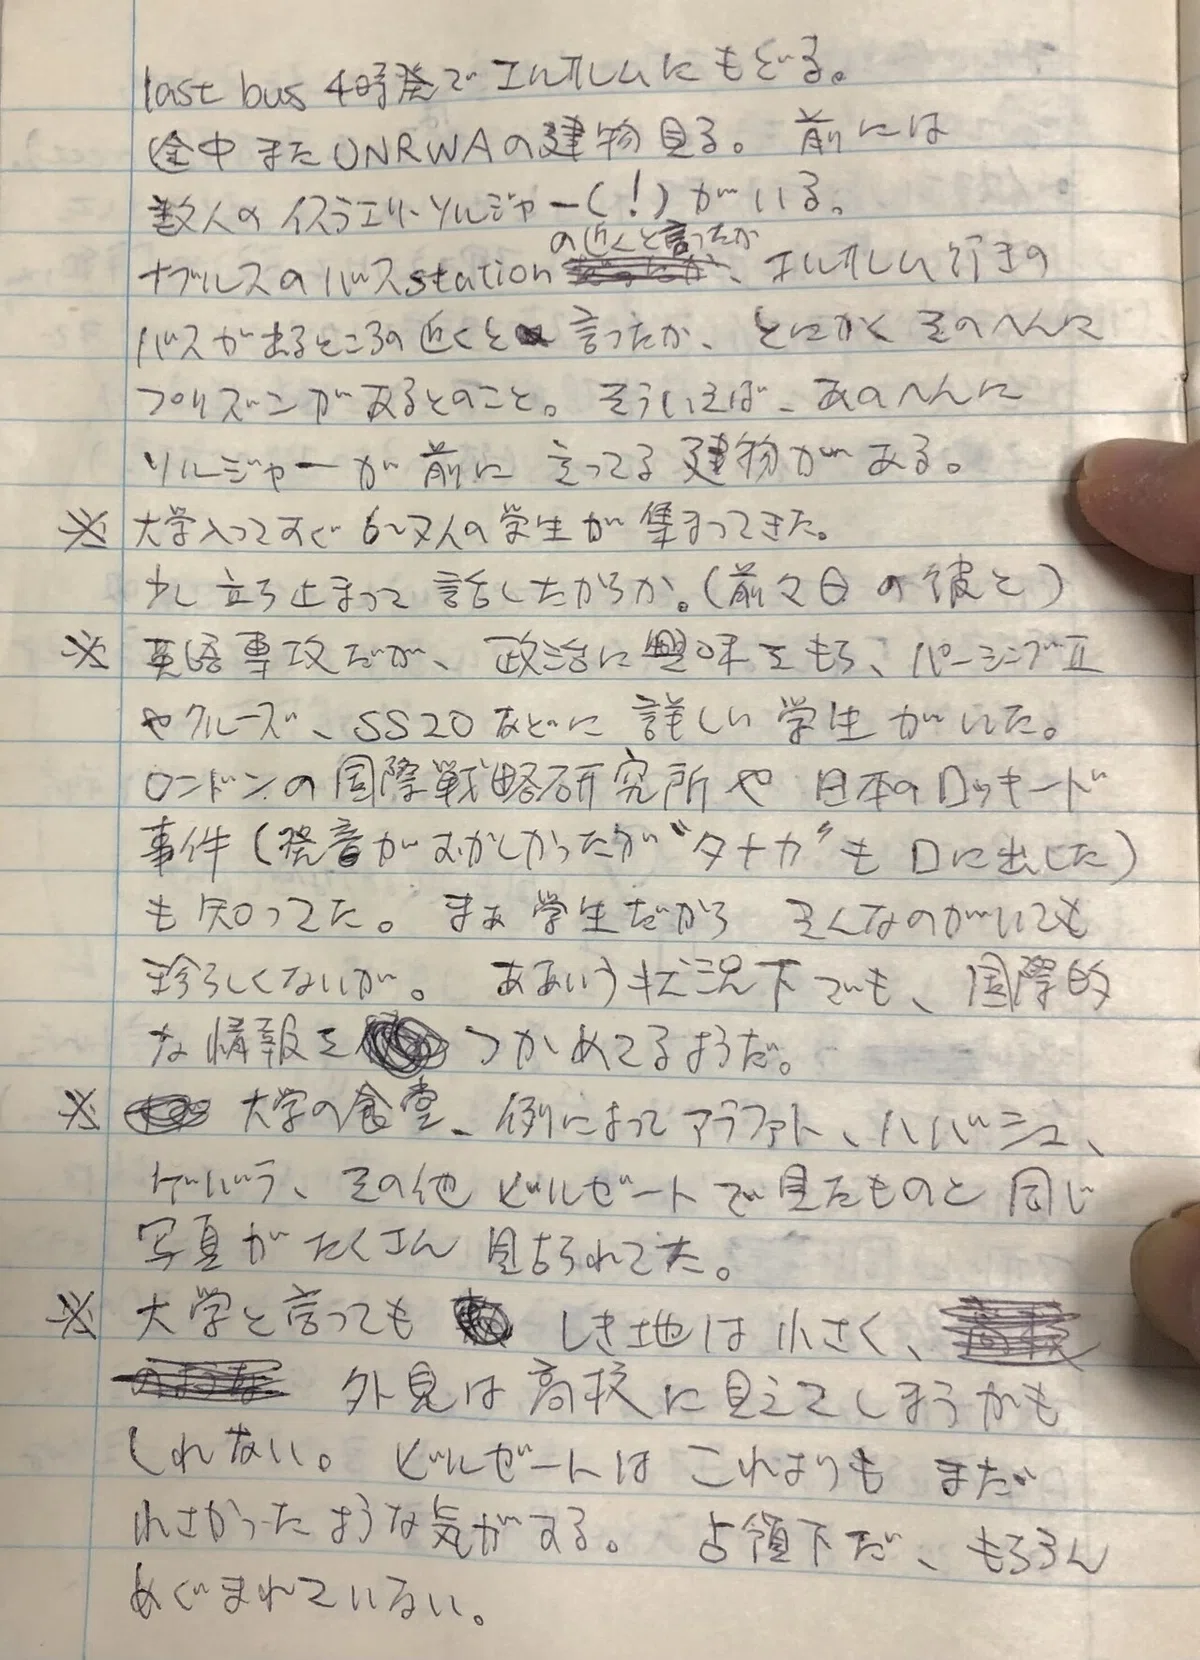 last bus 4時発でエルサレムにもどる。
途中またUNRWAの建物見る。 前には
数人のイスラエリ・ソルジャー(!)がいる。
の近くと言ったか
ナブルスのバスstation、エルサレム行きの
バスが出るところの近くと言ったか、とにかくそのへんに
プリズンがあるとのこと。そういえば、あのへんに
ソルジャーが前に立ってる建物がある。
※ 大学入ってすぐ6〜7人の学生が集まってきた。
少し立ち止まって話したからか。(前々日の彼と)
※ 英語専攻だが、政治に興味をもち、パーシングⅡ
やクルーズ、SS20などに詳しい学生がいた。
ロンドンの国際戦略研究所や日本のロッキード
事件(発音がむずかしかったが“タナカ”も口に出した)
も知ってた。まぁ学生だから そんなのがいても
珍らしくないが。 ああいう状況下でも、国際的
な情報をつかめてるようだ。
※ 大学の食堂、例によってアラファト、ハバシュ、
ゲバラ、その他ビルゼートで見たものと同じ
写真がたくさん見られてた。
※ 大学と言っても しき地は小さく、
外見は高校に見えてしまうかも
しれない。 ビルゼートはこれよりもまだ
小さかったような気がする。 占領下だ、もちろん
めぐまれていない。